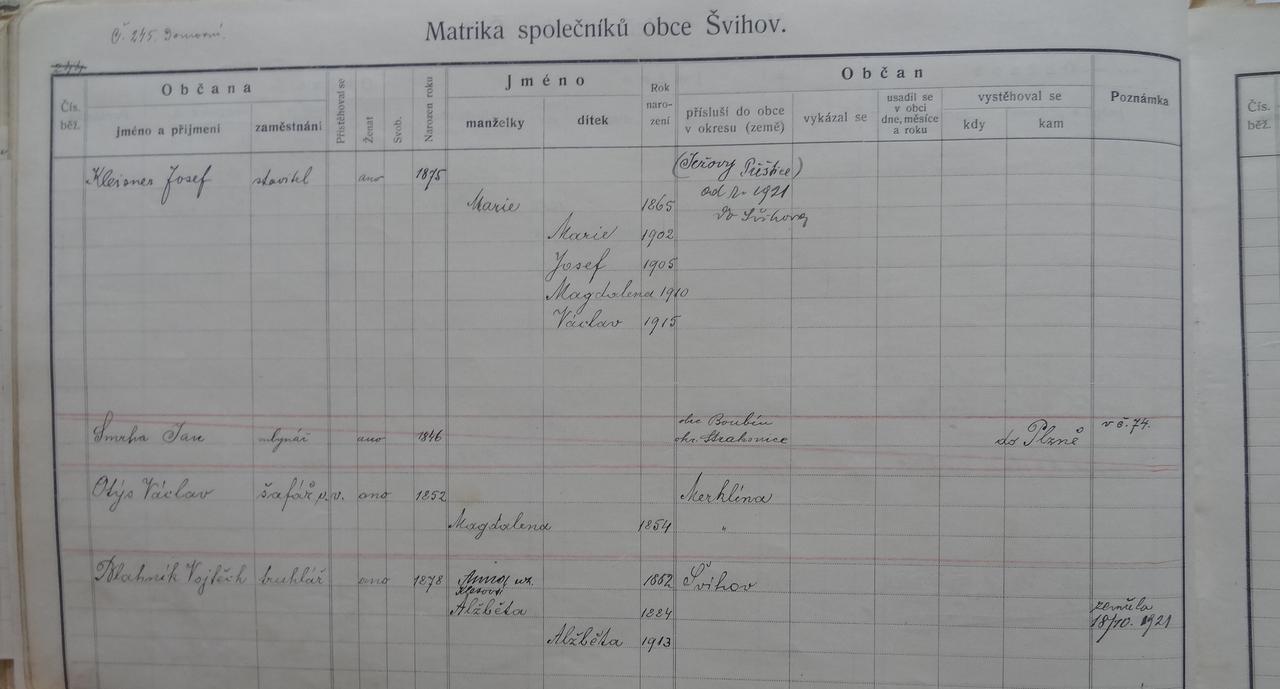 Č. 245. Domovní.
Matrika společníků obce Švihov.
244
Čís. běž.
Občana
jméno a příjmení
zaměstnání
Přistěhoval se
Ženat
Svob.
Narozen roku
Jméno
manželky
dítek
Rok naro- zení
Občan
přísluší do obce v okresu (země)
vykázal se
usadil se v obci dne, měsíce a roku
vystěhoval se
kdy
kam
Poznámka
Čís. běž.
Kleisner Josef stavitel ano 1875 (Ježovy Přeštice)
Marie 1865 od r. 1921
do Švihova
Marie 1902
Josef 1905
Magdalena 1910
Václav 1915
Smrha Jan mlynář ano 1846 obc Boubín okr. Strakonice do Plzně v č. 74.
Otýs Václav šafář v. v. ano 1852 Merklína
Magdalena 1854 "
Blahník Vojtěch truhlář ano 1878 Anna 1862 Švihov
Alžběta 1884 zemřela 18/10. 1921
Alžběta 1913